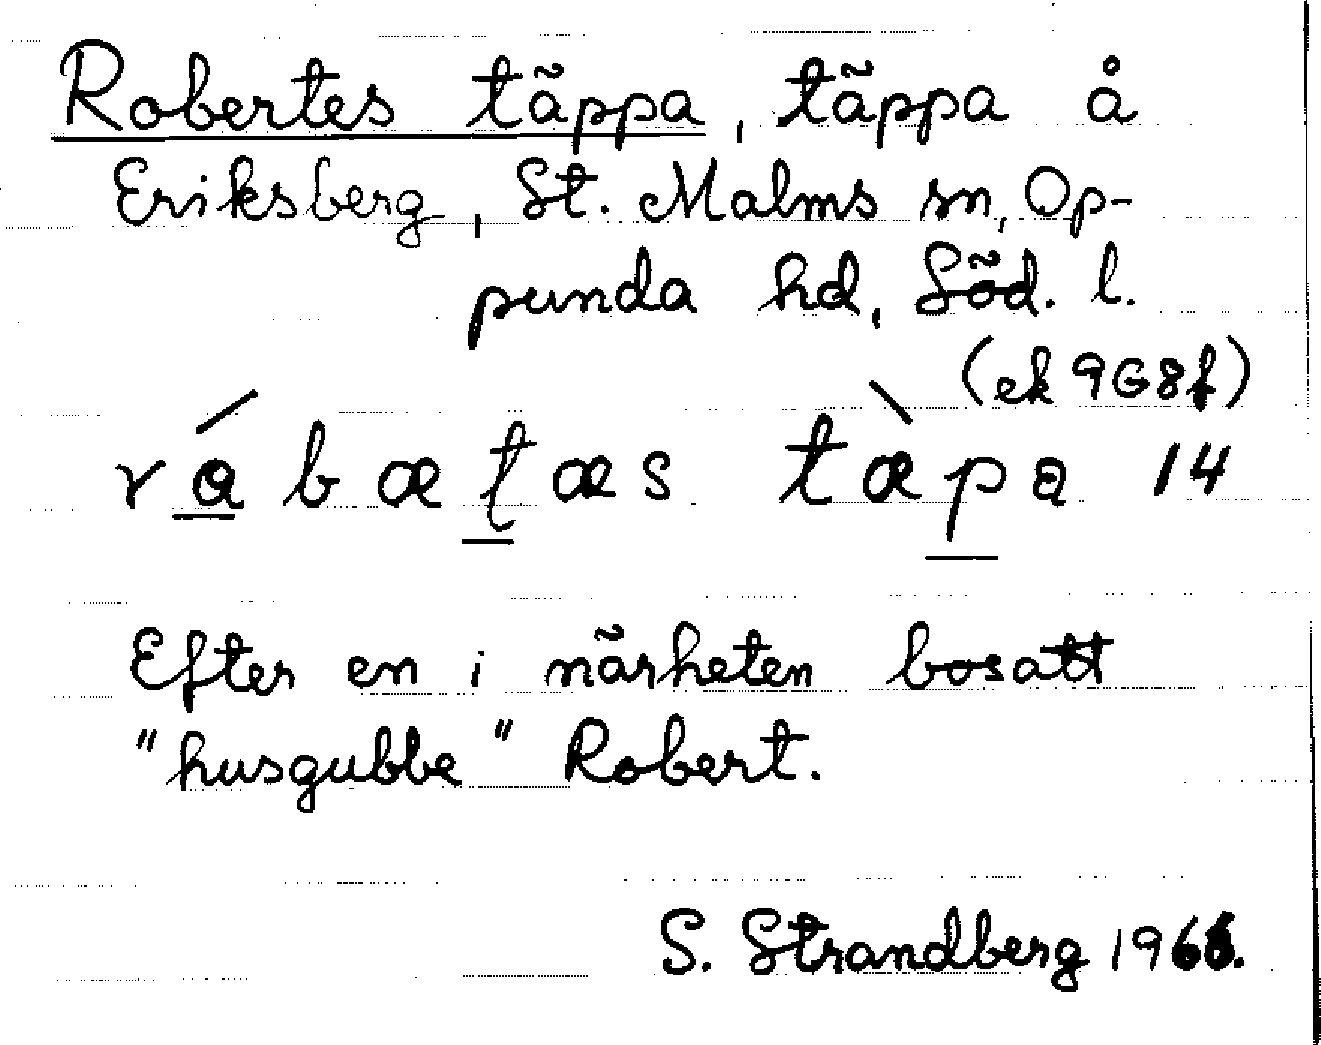 Robertes täppa, täppa å
Eriksberg, St. Malms sn, Op-
punda hd, Söd. l.
(ek 9G8f)
rábætæs tæ̀pa 14
Efter en i närheten bosatt
"husgubbe" Robert.
S. Strandberg 1966.